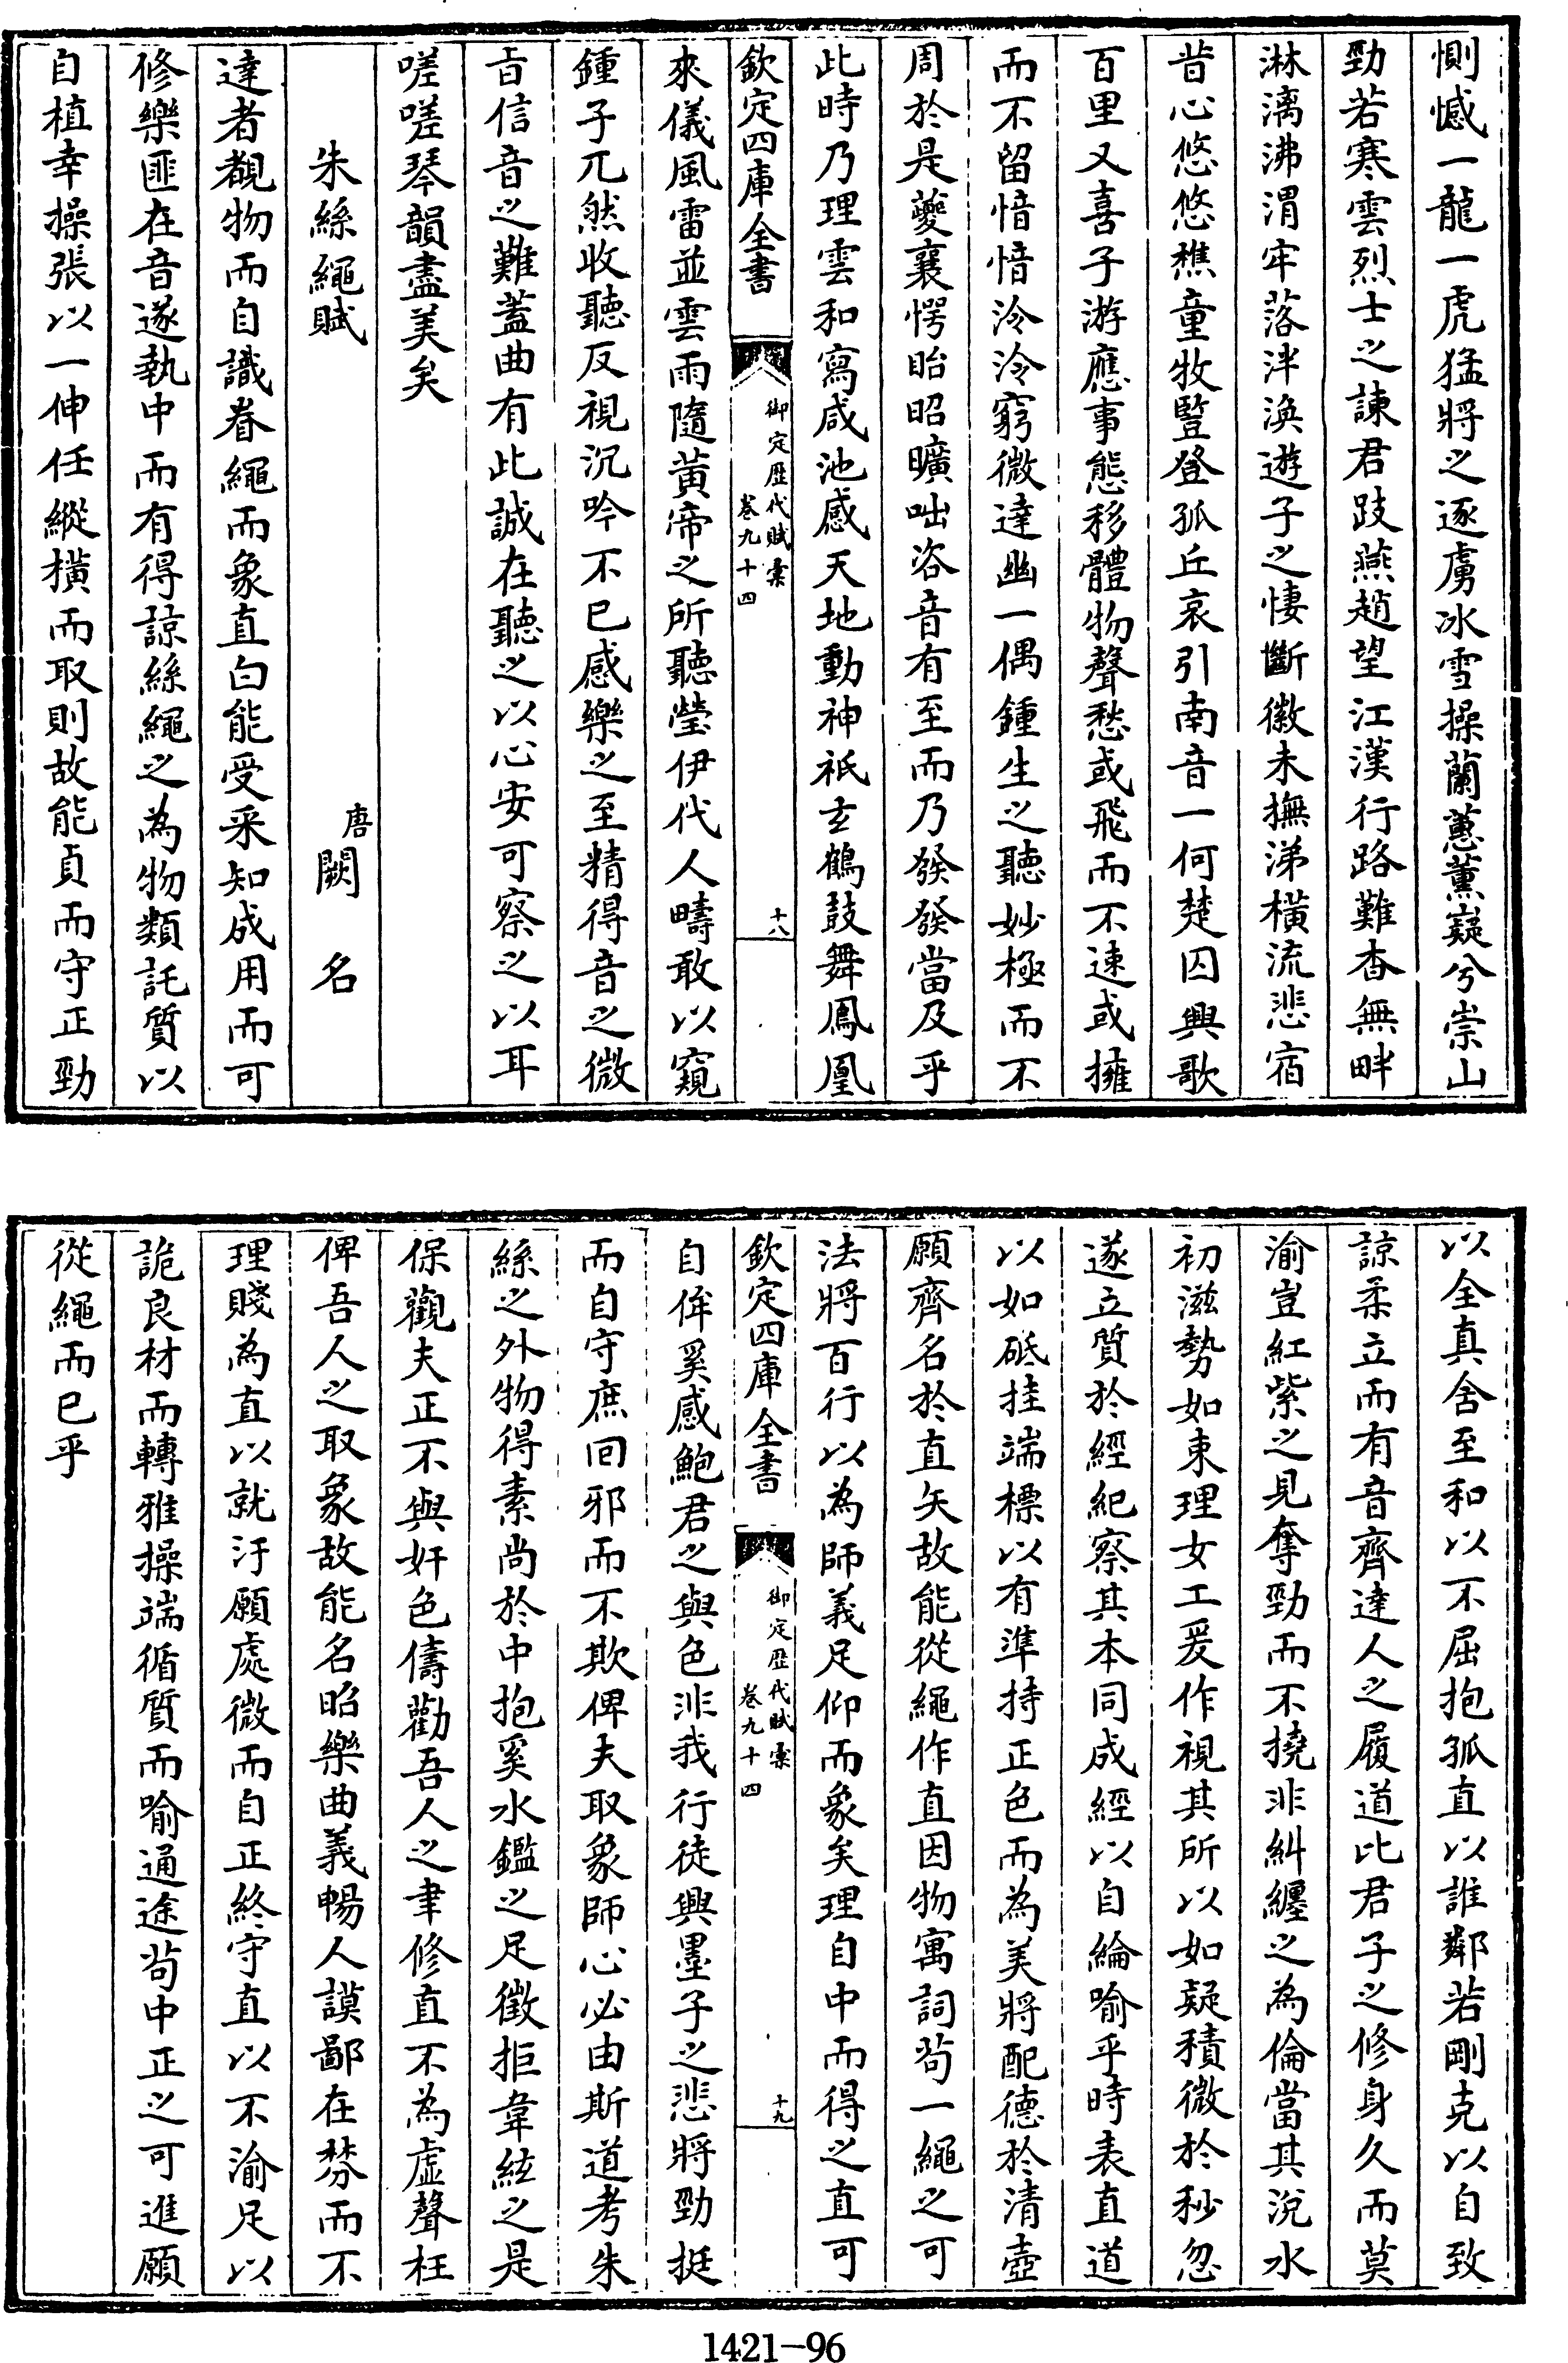 惻憾一龍一虎猛將之逐虜冰雪操蘭蕙薰嶷兮崇山
勁若寒雲烈士之諫君跂燕趙望江漢行路難杳無畔
淋漓沸渭牢落泮渙遊子之悽斷徽未撫涕橫流悲宿
昔心悠悠樵童牧豎登孤丘哀引南音一何楚囚興歌
百里又喜子游應事態移體物聲愁或飛而不速或擁
而不留愔愔泠泠窮微達幽一偶鍾生之聽妙極而不
周於是夔襄愕眙昭曠咄咨音有至而乃發發當及乎
此時乃理雲和寫咸池感天地動神祇玄鶴鼓舞鳳凰
欽定四庫全書
御定歷代賦彙
卷九十四
十八
來儀風雷並雲雨隨黃帝之所聽瑩伊代人疇敢以窺
鍾子兀然收聽反視沉吟不已感樂之至精得音之微
旨信音之難蓋曲有此誠在聽之以心安可察之以耳
嗟嗟琴韻盡美矣
朱絲繩賦
唐闕名
達者覩物而自識眷繩而象直白能受采知成用而可
修樂匪在音遂執中而有得諒絲繩之為物類託質以
自植幸操張以一伸任縱橫而取則故能貞而守正勁
以全真舍至和以不屈抱孤直以誰鄰若剛克以自致
諒柔立而有音齊達人之履道比君子之修身久而莫
渝豈紅紫之見奪勁而不撓非糾纆之為倫當其涗水
初滋勢如束理女工爰作視其所以如疑積微於秒忽
遂立質於經紀察其本同成經以自綸喻乎時表直道
以如砥挂端標以有準持正色而為美將配德於清壺
願齊名於直矢故能從繩作直因物寓詞茍一繩之可
法將百行以為師義足仰而象矣理自中而得之直可
欽定四庫全書
御定歷代賦彙
卷九十四
十九
自侔奚感鮑君之與色非我行徒興墨子之悲將勁挺
而自守庶回邪而不欺俾夫取象師心必由斯道考朱
絲之外物得素尚於中抱奚水鑑之足徵拒韋絃之是
保觀夫正不與奸色儔勸吾人之聿修直不為虛聲枉
俾吾人之取象故能名昭樂曲義暢人謨鄙在棼而不
理賤為直以就汙願處微而自正終守直以不渝足以
詭良材而轉雅操端循質而喻通途茍中正之可進願
從繩而已乎
1421-96